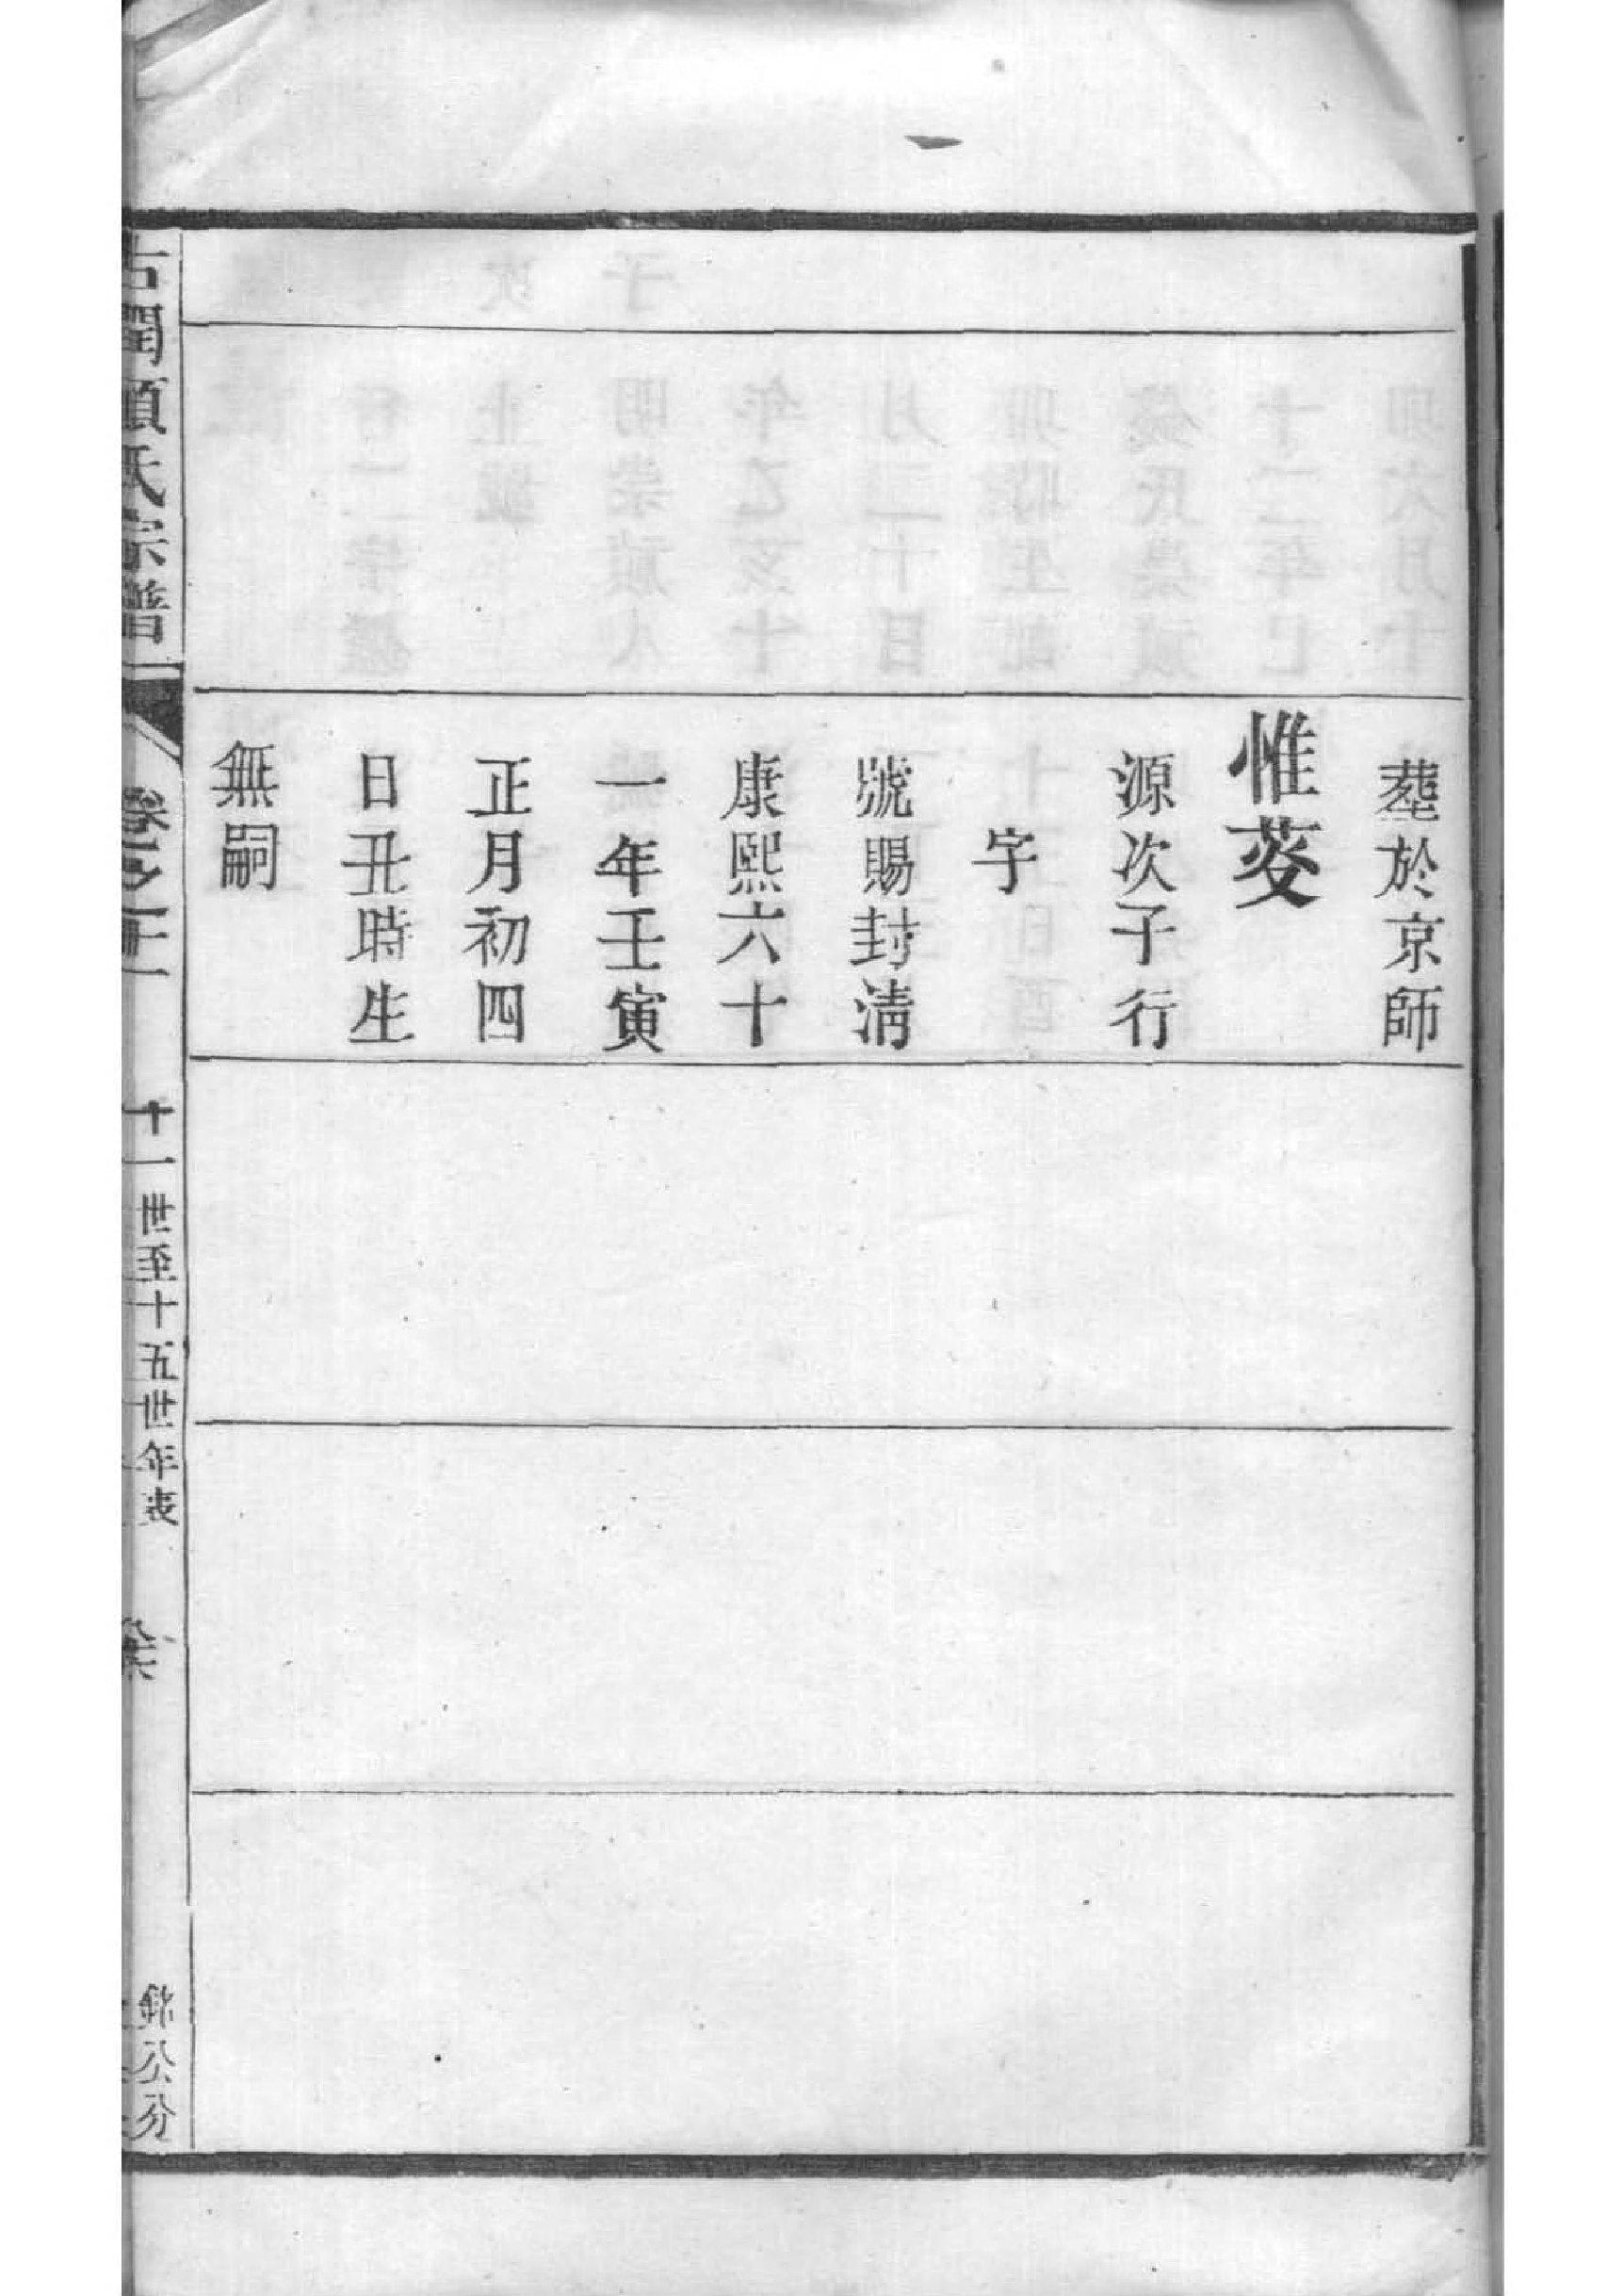 葬於京師
惟荾
源次子行
字
號賜封清
康熙六十
一年壬寅
正月初四
日丑時生
無嗣
古潤順氏宗譜
卷之二十一
十一世至十五世年表
錦公分